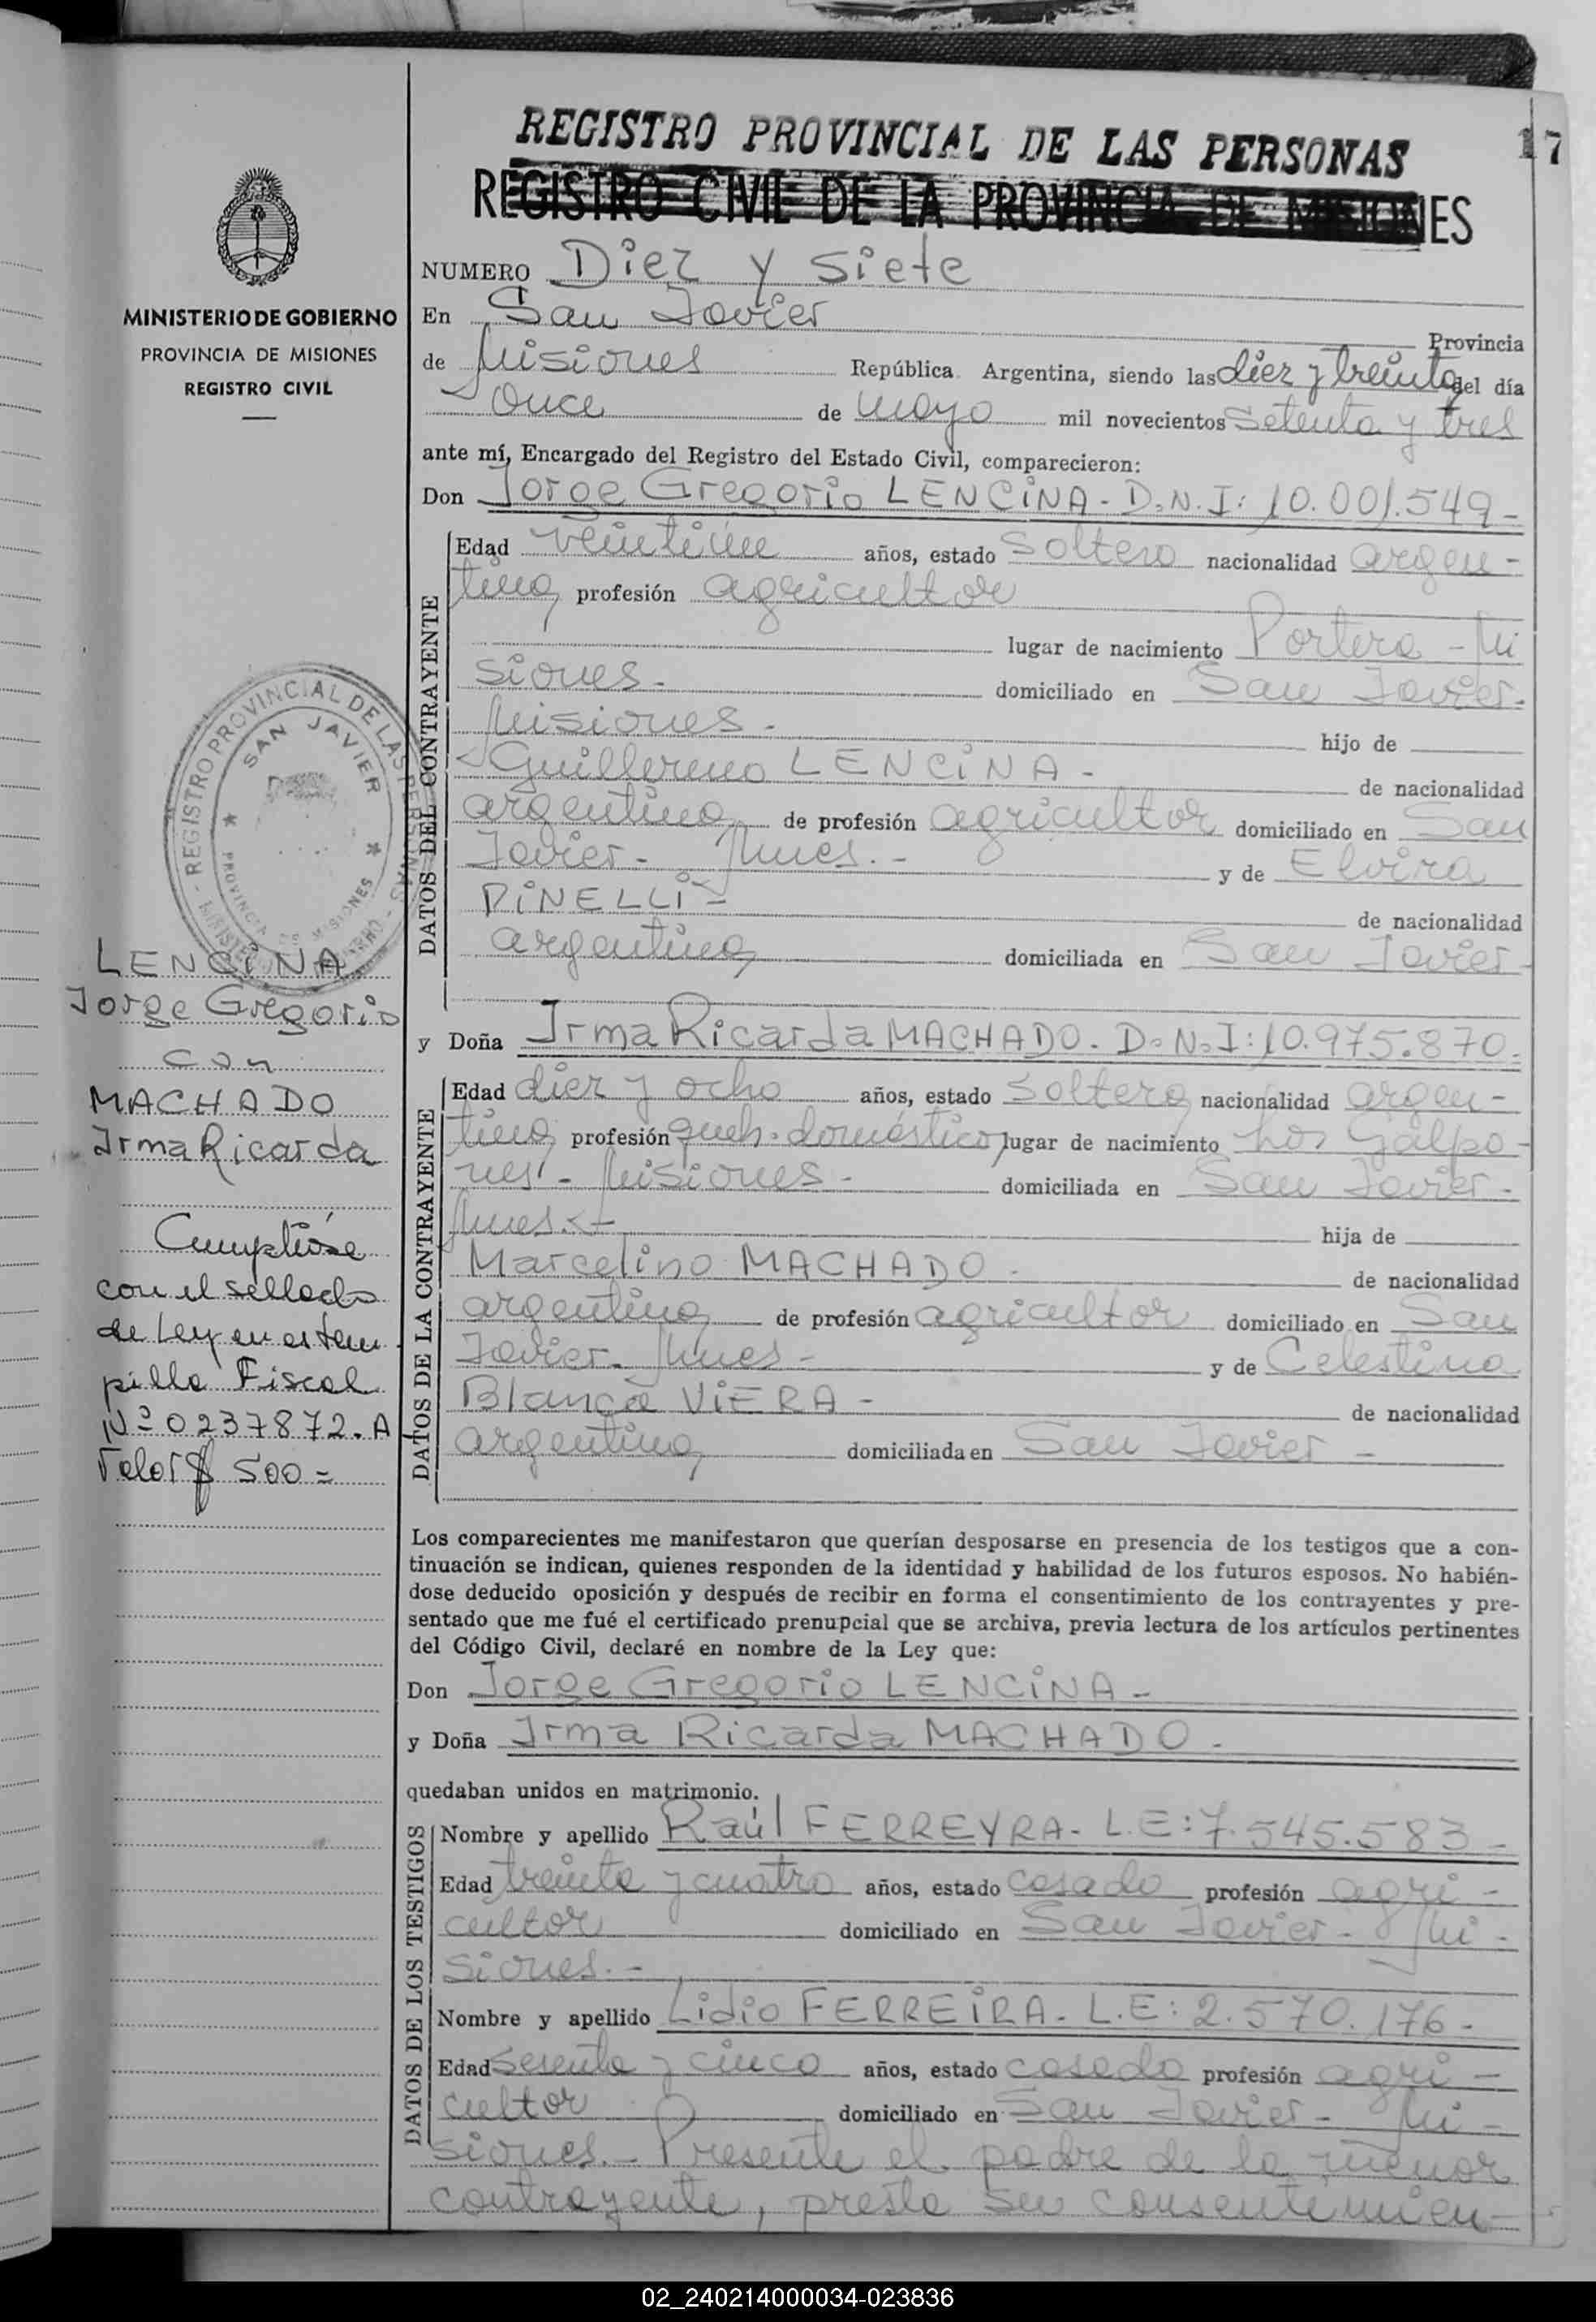 REGISTRO PROVINCIAL DE LAS PERSONAS
17
REGISTRO CIVIL DE LA PROVINCIA DE MISIONES
MINISTERIO DE GOBIERNO
PROVINCIA DE MISIONES
REGISTRO CIVIL
NUMERO Diez y siete
En San Javier Provincia
de Misiones República Argentina, siendo las diez y treinta del día
once de mayo mil novecientos setenta y tres
ante mí, Encargado del Registro del Estado Civil, comparecieron:
Don Jorge Gregorio LENCINA - D.N.I: 10.001.549 -
DATOS DEL CONTRAYENTE
Edad veintiún años, estado soltero nacionalidad argen-
tina, profesión agricultor
lugar de nacimiento Portera - Mi
siones. - domiciliado en San Javier -
Misiones - hijo de
Guillermo LENCINA - de nacionalidad
argentina, de profesión agricultor domiciliado en San
Javier - Mnes. - y de Elvira
PINELLI - de nacionalidad
argentina, domiciliada en San Javier -
REGISTRO PROVINCIAL DE LAS PERSONAS
SAN JAVIER
PROVINCIA DE MISIONES
LENCINA
Jorge Gregorio
con
MACHADO
Irma Ricarda
Cumplióse
con el sellado
de Ley en estam
pilla Fiscal
Nº 0237872.A
Valor $ 500 =
y Doña Irma Ricarda MACHADO. D.N.I: 10.975.870.
DATOS DE LA CONTRAYENTE
Edad diez y ocho años, estado soltera, nacionalidad argen-
tina, profesión queh. doméstico, lugar de nacimiento Los Galpo-
nes - Misiones - domiciliada en San Javier -
Mnes. - hija de
Marcelino MACHADO - de nacionalidad
argentina, de profesión agricultor domiciliado en San
Javier - Mnes - y de Celestina
Blanca VIERA - de nacionalidad
argentina, domiciliada en San Javier -
Los comparecientes me manifestaron que querían desposarse en presencia de los testigos que a con-
tinuación se indican, quienes responden de la identidad y habilidad de los futuros esposos. No habién-
dose deducido oposición y después de recibir en forma el consentimiento de los contrayentes y pre-
sentado que me fué el certificado prenupcial que se archiva, previa lectura de los artículos pertinentes
del Código Civil, declaré en nombre de la Ley que:
Don Jorge Gregorio LENCINA -
y Doña Irma Ricarda MACHADO -
quedaban unidos en matrimonio.
DATOS DE LOS TESTIGOS
Nombre y apellido Raúl FERREYRA - L.E: 7.545.583 -
Edad treinta y cuatro años, estado casado profesión agri -
cultor domiciliado en San Javier - Mi -
siones. -
Nombre y apellido Lidio FERREIRA - L.E: 2.570.176 -
Edad sesenta y cinco años, estado casado profesión agri -
cultor domiciliado en San Javier - Mi -
siones. - Presente el padre de la menor
contrayente, presta su consentimien-
02_240214000034-023836